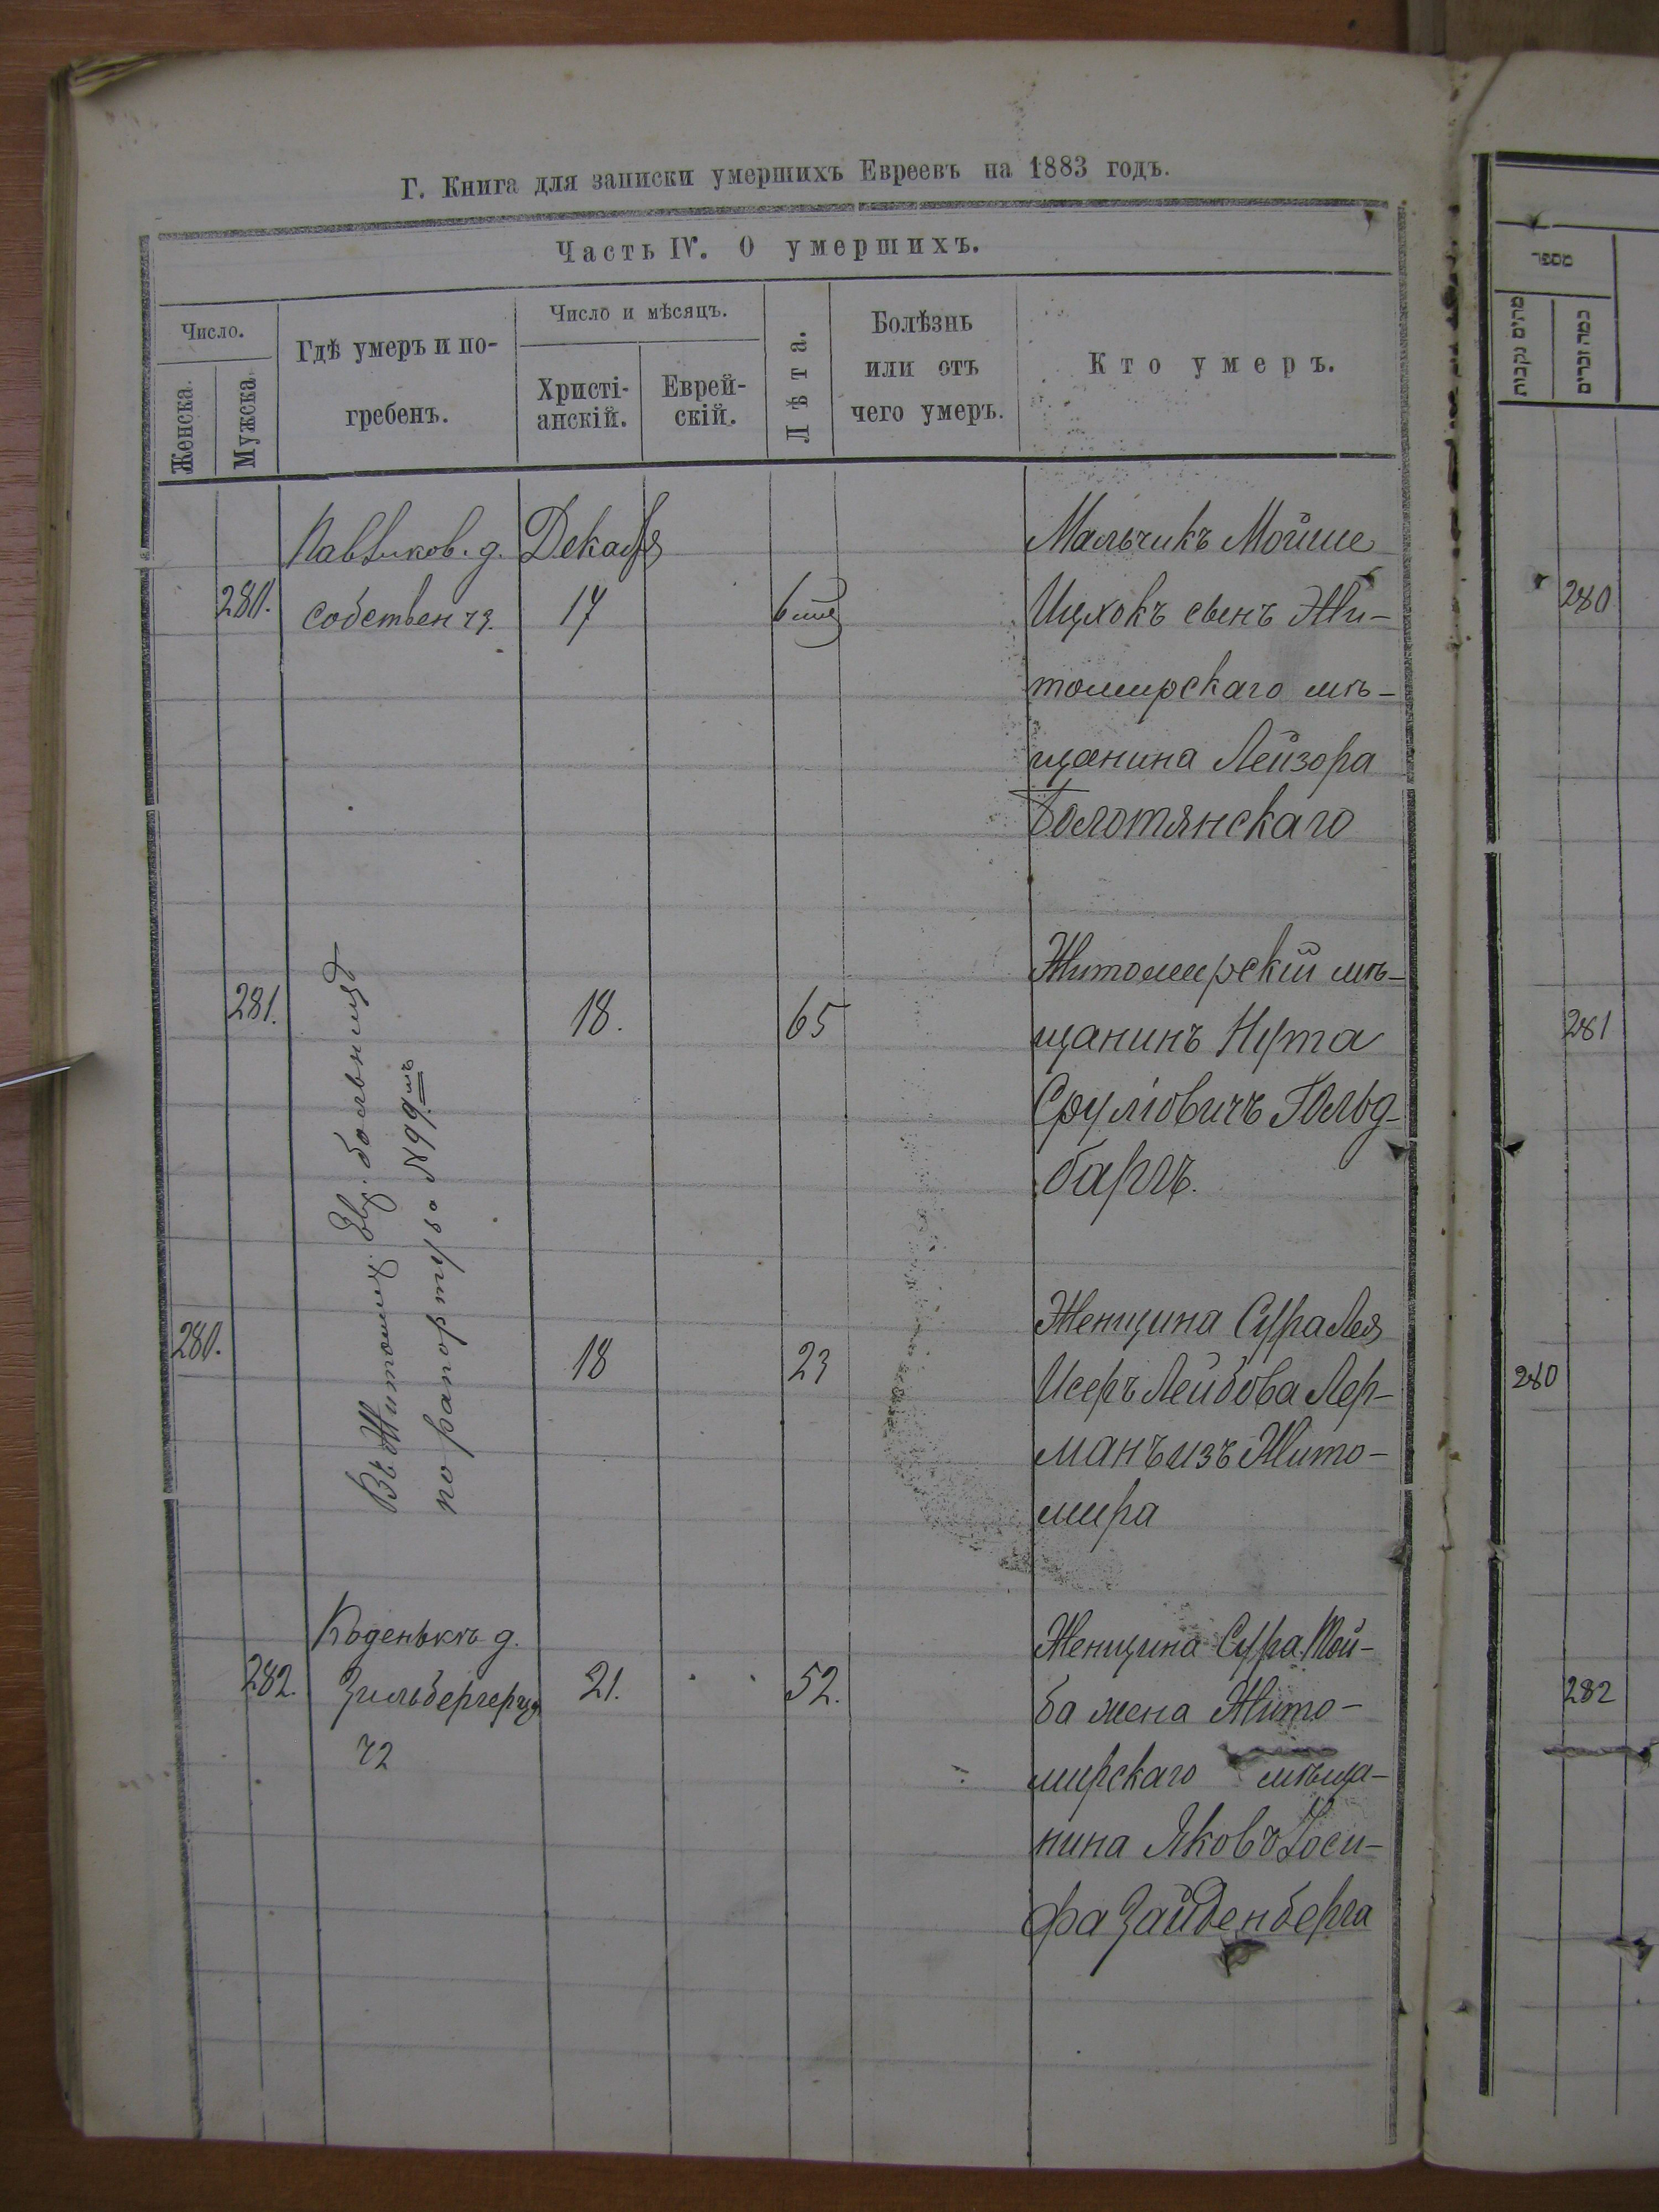 Г. Книга для записки умершихъ Евреевъ на 1883 годъ.
Часть IV. О умершихъ.
Число.
Женска.
Мужска
Гдѣ умеръ и по-
гребенъ.
Число и мѣсяцъ.
Христі-
анскій.
Еврей-
скій.
Лѣта.
Болѣзнь
или отъ
чего умеръ.
Кто умеръ.
280.
собствен
Декабря
17
Мальчикъ Мойше
Ицхокъ сынъ Жи-
томирскаго мѣ-
щанина Лейзора
Болотянскаго
281.
Въ Житомир. Евр. больницѣ
по рапорту
18.
65
Житомирскій мѣ-
щанинъ Нута
Сруліовичъ Гольд-
баргъ.
280.
18
23
Женщина Сура Лея
Исеръ Лейбова Лер-
манъ изъ Жито-
мира
282.
д.
21.
52.
Женщина Сура Той-
ба жена Жито-
мирскаго мѣща-
нина Яковъ Іоси-
фа Зайденберга
מספר
מהים נקבות
כמה זכרים
280
281
280
282